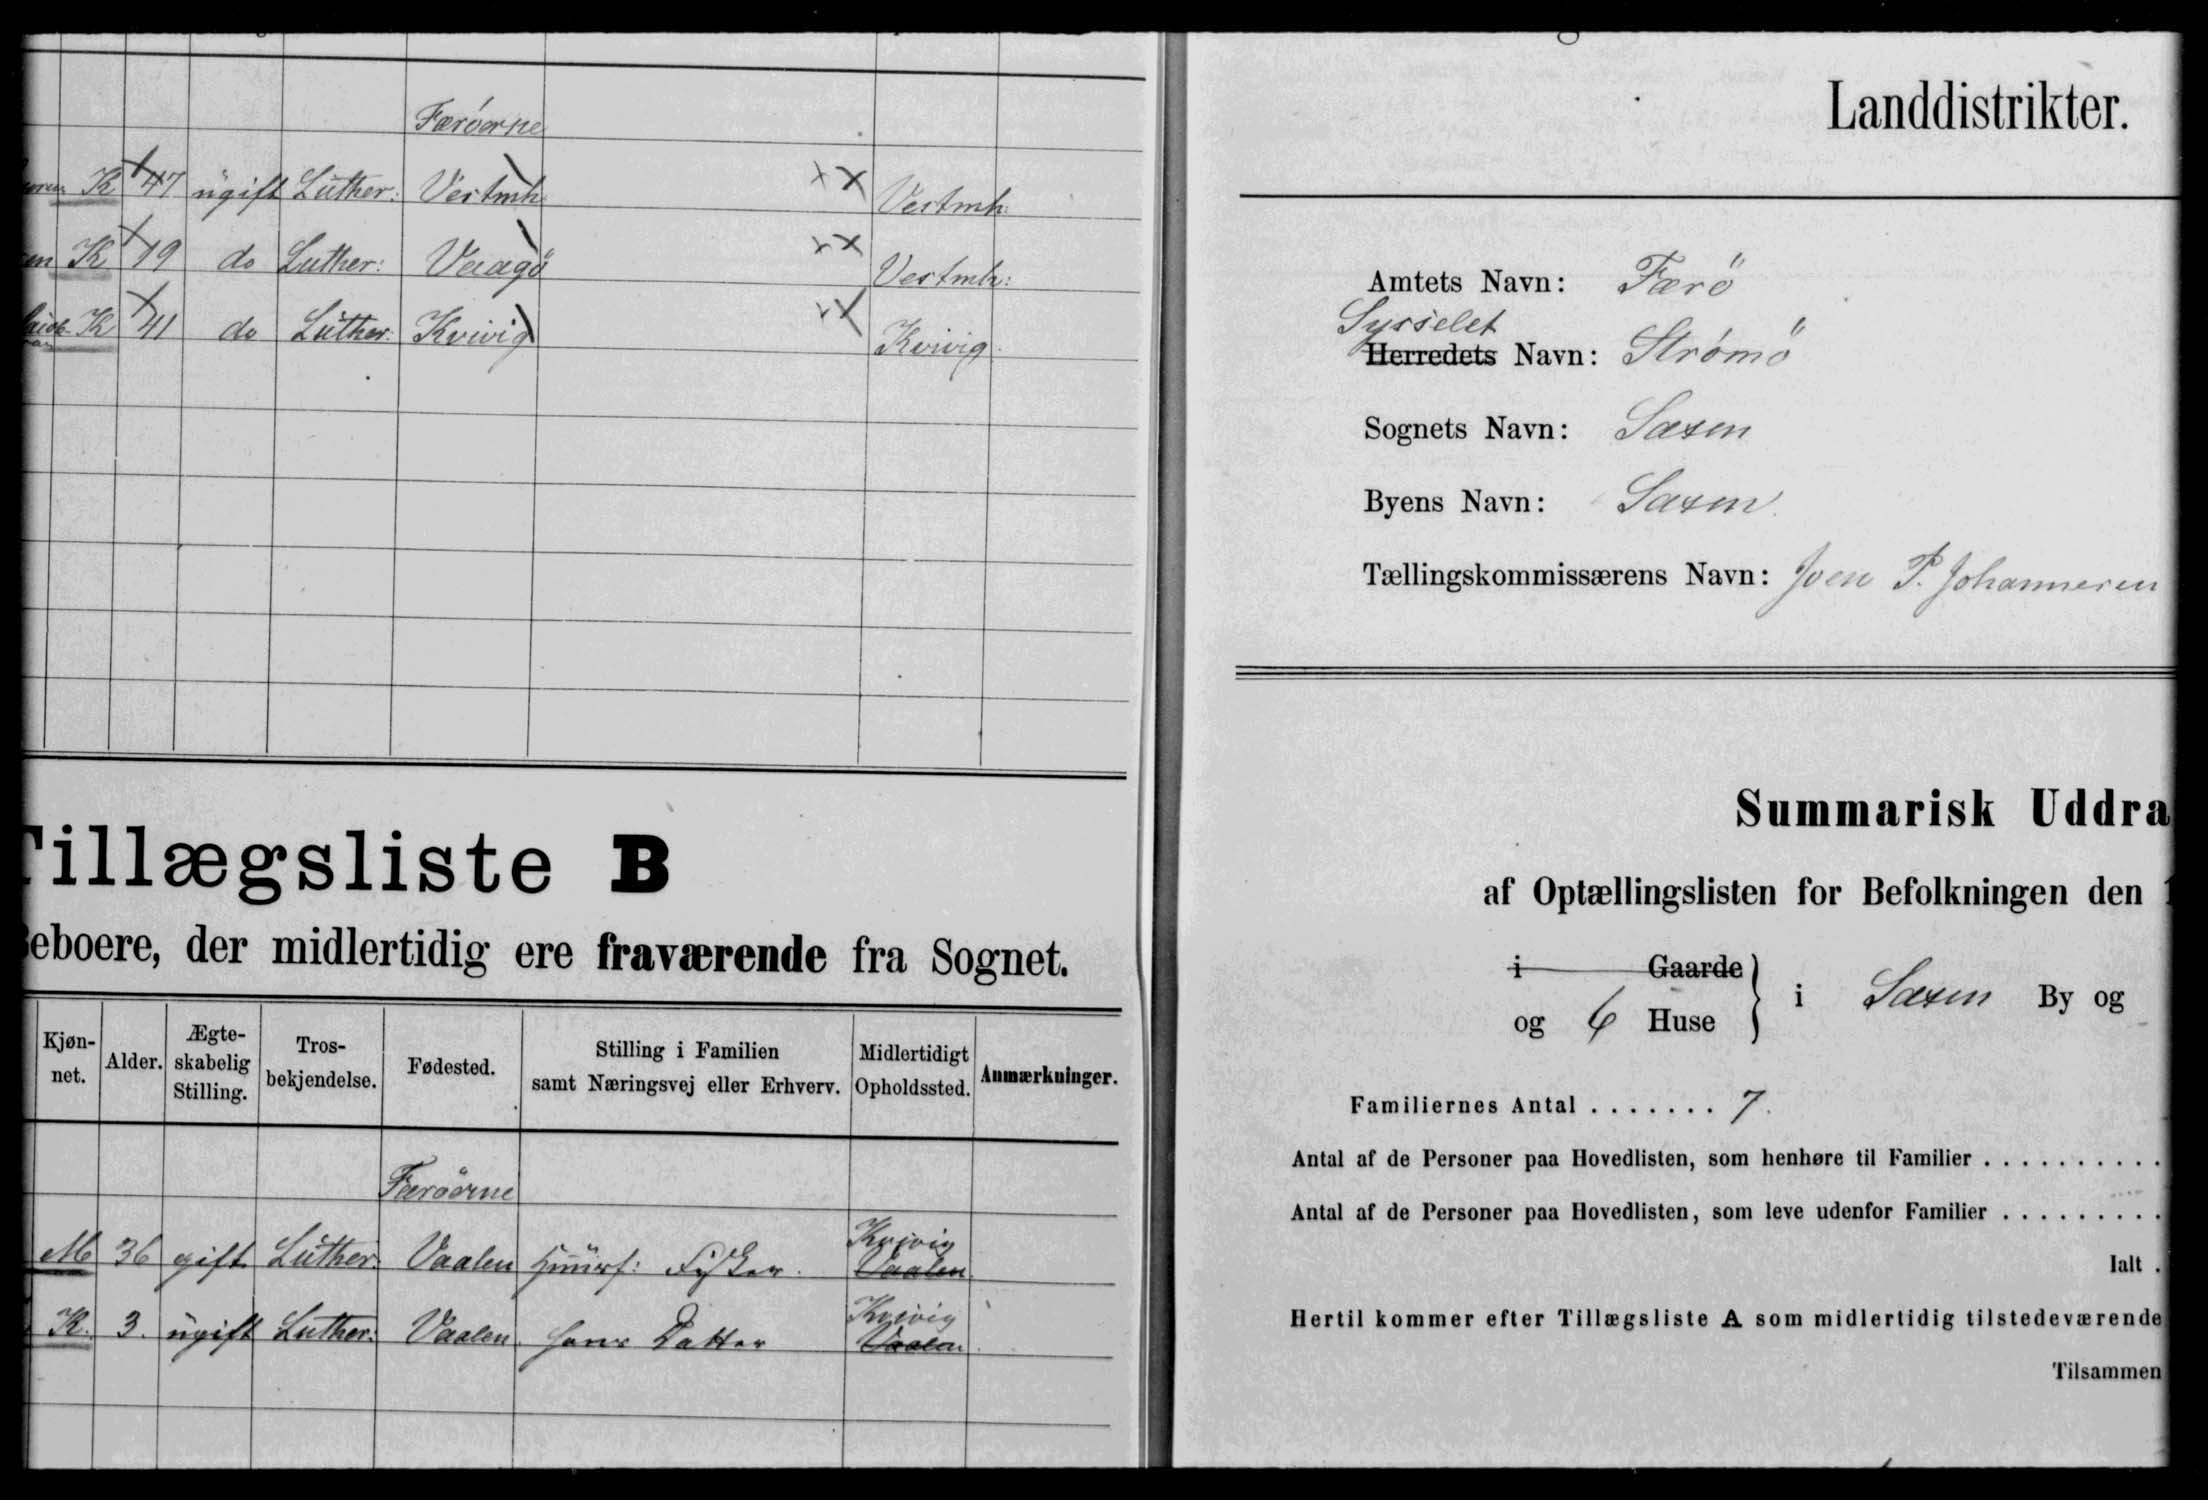 Færöerne
K 47 ugift Luther: Vestmh ×× Vestmh:
en K 19 do Luther: Vaagö ×× Vestmh:
K 41 do Luther: Kvivig ×× Kvivig
Tillægsliste B
Beboere, der midlertidig ere fraværende fra Sognet.
Kjøn-
net.
Alder.
Ægte-
skabelig
Stilling.
Tros-
bekjendelse.
Fødested.
Stilling i Familien
samt Næringsvej eller Erhverv.
Midlertidigt
Opholdssted.
Anmærkninger.
Færöerne
M 36 gift Luther: Vaalen Huusf: Fisker. Kvivig
Vaalen
K. 3. ugift Luther: Vaalen. Hans Datter Kvivig
Vaalen
Landdistrikter.
Amtets Navn: Færö
Sysselet
Herredets Navn: Strömö
Sognets Navn: Saxen
Byens Navn: Saxen
Tællingskommissærens Navn: Joen P. Johannesen
Summarisk Uddra
af Optællingslisten for Befolkningen den 1
i Gaarde
og 6 Huse } i Saxen By og
Familiernes Antal ....... 7.
Antal af de Personer paa Hovedlisten, som henhøre til Familier ..........
Antal af de Personer paa Hovedlisten, som leve udenfor Familier .........
Ialt .
Hertil kommer efter Tillægsliste A som midlertidig tilstedeværende
Tilsammen